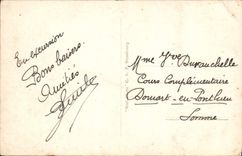 En excursion
Bons baisers.
Amitiés
Mme Yve Duvauchelle
Cours Complémentaire
Domart-en-Ponthieu
Somme